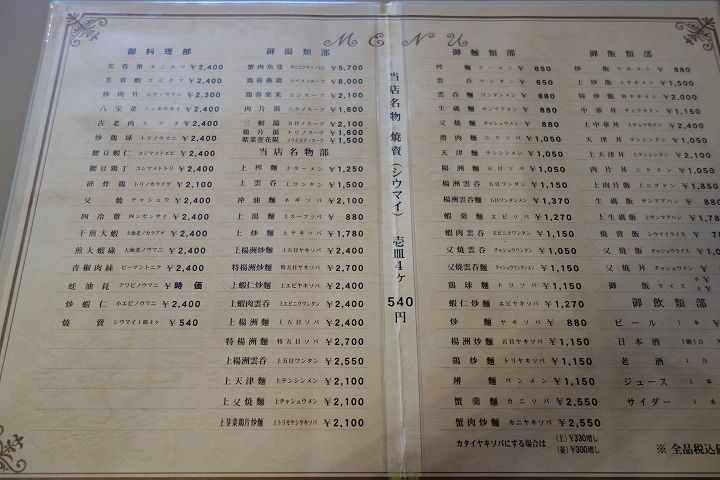 MENU
御料理部
芙蓉蟹 カニタマ ￥2,400
芙蓉蝦 エビタマ ￥2,400
炒肉片 ニクノウマニ ￥2,300
八宝菜 ハッポウサイ ￥2,400
古老肉 スブタ ￥2,400
炒鶏球 トリノウマニ ￥2,400
腰豆蝦仁 コシマストエビ ￥2,400
腰豆鶏丁 コシマストトリ ￥2,400
碎炸鶏 トリノカラアゲ ￥2,100
叉焼 チャシュウ ￥2,400
四冷葷 四シゼンサイ ￥2,400
干煎大蝦 大海老ノカラアゲ ￥2,400
煎大蝦碌 大海老ノウマニ ￥2,400
青椒肉絲 ピーマントニク ￥2,400
蚝油 アワビノウマニ ￥時価
炒蝦仁 小エビノウマニ ￥2,400
焼賣 シウマイ1皿4ヶ ￥540
御湯類部
蟹肉魚翅 ￥5,700
鶏蓉燕窩 ツバメノスープ ￥8,000
鶏蓉粟米 コンスープ ￥2,100
肉片湯 ニクノスープ ￥1,600
三鮮湯 五目ノスープ ￥2,100
鶏片湯 トリノスープ ￥1,600
紫菜萱花湯 ノリト玉子ノスープ ￥1,500
当店名物部
上桞麺 上ラーメン ￥1,250
上雲呑 上ワンタン ￥1,500
冲油麺 ネギソバ ￥2,100
上湯麺 上スープソバ ￥880
上炒麺 上ヤキソバ ￥1,780
上楊洲炒麺 上五目ヤキソバ ￥2,400
特楊洲炒麺 特五目ヤキソバ ￥2,700
上蝦仁炒麺 上エビヤキソバ ￥2,400
上蝦肉雲呑 上エビニクワンタン ￥2,400
上楊洲麺 上五目ソバ ￥2,400
特楊洲麺 特五目ソバ ￥2,700
上楊洲雲呑 上五目ワンタン ￥2,550
上天津麺 上テンシンメン ￥2,100
上叉焼麺 上チャシュウメン ￥2,100
上芽菜鶏片炒麺 上トリモヤシヤキソバ ￥2,100
当店名物 焼賣（シウマイ） 壱皿4ヶ 540円
御麺類部
麺 ラーメン ￥650
雲呑 ワンタン ￥650
雲呑麺 ワンタンメン ￥880
生碼麺 サンマアメン ￥880
叉焼麺 チャシュウメン ￥880
滑肉麺 ニクソバ ￥1,050
天津麺 テンシンメン ￥1,050
楊洲麺 五目ソバ ￥1,050
楊洲雲呑 五目ワンタン ￥1,150
楊洲雲呑麺 五目ワンタンメン ￥1,370
蝦羹麺 エビソバ ￥1,270
蝦肉雲呑 エビニクワンタン ￥1,150
叉焼雲呑 チャシュウワンタン ￥1,050
叉焼雲呑麺 チャシュウワンタンメン ￥1,150
鶏球麺 トリソバ ￥1,150
蝦仁炒麺 エビヤキソバ ￥1,270
炒麺 ヤキソバ ￥880
楊洲炒麺 五目ヤキソバ ￥1,150
鶏炒麺 トリヤキソバ ￥1,150
辨麺 バンメン ￥1,150
蟹羹麺 カニソバ ￥2,550
蟹肉炒麺 カニヤキソバ ￥2,550
カタイヤキソバにする場合は （上）￥330増し
（並）￥300増し
御飯類部
炒飯 ヤキメシ ￥880
上炒飯 上ヤキメシ ￥1,500
特炒飯 特ヤキメシ ￥2,000
中華丼 チュウカドン ￥1,150
上中華丼 上チュウカドン ￥2,400
天津丼 テンシンドン ￥1,150
上天津丼 上テンシンドン ￥2,100
肉片丼 ニクドン ￥1,050
上肉片飯 上ニクドン ￥1,850
生碼飯 サンマアハン ￥880
上生碼飯 上サンマアハン ￥1,780
焼賣飯 シウマイライス
叉焼飯 チャシュウライス
叉焼丼 チャシュウドン
御飯 ライス
御飲類部
ビール 1本
日本酒 1銚1合
老酒 1合
ジュース 1本
サイダー 1本
※全品税込価